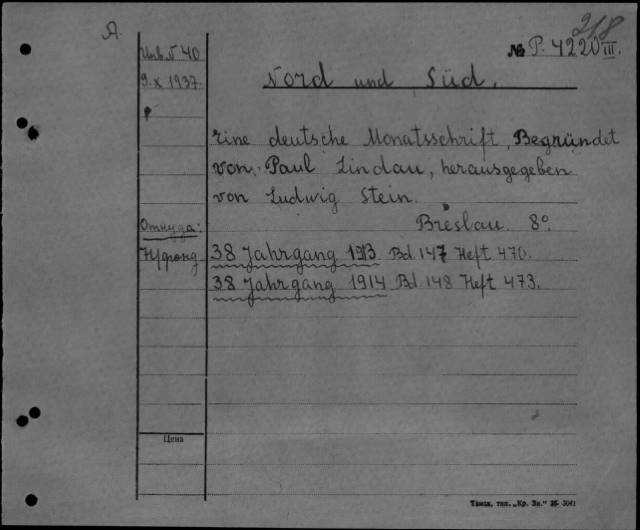 A.
218
№ P. 4220 III.
Инв. N 40
9.X 1937.
Nord und Süd.
Eine deutsche Monatsschrift, Begründet
von: Paul Lindau, herausgegeben
von Ludwig Stein.
Breslau. 8°
Откуда:
Н/фонд
38 Jahrgang 1913 Bd. 147 Heft 470.
38 Jahrgang 1914 Bd. 148 Heft 473.
Цена
Томск, тип. „Кр. Зн.“ № 3041